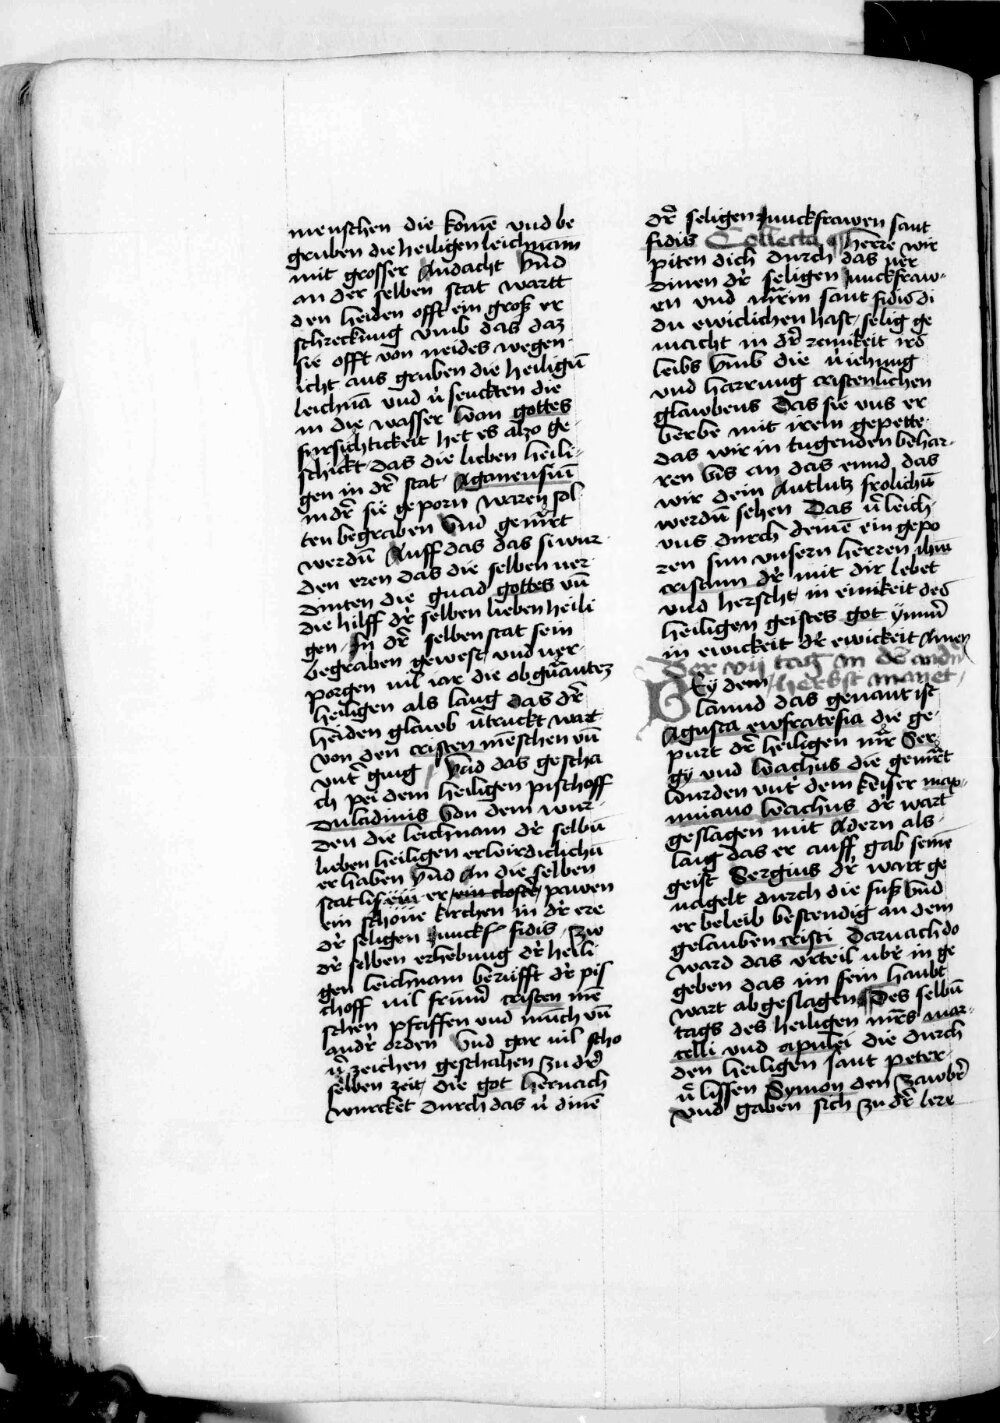 menschen die komē vnd be
gruben die heiligen leichnam
mit grosser Andacht Vnd
an der selben stat wartt
den heiden offt ein groß er
schreckung vmb das daz
sie offt von neides wegen
icht aus gruben die heiligū
leichnā vnd v̉ senckten die
in die wasser Wan gottes
fursichtickeit het es also ge
schickt das die lieben heili
gen in dr̄ stat Aganensiū
in dr̄ sie geporn waren sol
ten begraben Vnd gemr̄t
werdū Auff das das si wur
den eren das die selben ver
dinten die gnad gottes vū
die hilff dr̄ selben lieben heili
gen In dr̄ selben stat sein
begraben gewest vnd ver
porgen vil iar die obgenantez
heiligen als lang das dr̄
heiden glawb v̉truckt wart
von den cristen menschen vū
vnt̉ ging Vnd das gescha
ch pei dem heiligen pischoff
dulcidinis Von dem wur
den die leichnam dr̄ selbū
lieben heiligen erwirdiclichū
er haben Vnd An die selben
stat lis er ein closter pawen
ein schöne kirchen in dr̄ ere
dr̄ seligen Junckf fidis zw
dr̄ selben erhebung dr̄ heili
gen leichnam berüfft dr̄ pis
choff vil frūm̄ cristen mē
schen pfaffen vnd münch vū
andr̄ orden Vnd gar vil scho
v̉ zeichen geschahen zu dr̄
selben zeit die got hernach
wurcket durch das v̉ dinē
dr̄ seligen Junckfrawen sant
fidis Collecta Herre wir
piten dich durch das ver
dinen dr̄ seligen Junckfraw
en vnd mr̄rin sant fidis di
du ewiclichen hast selig ge
macht in dr̄ reinikeit irs
leibs Vmb die v̉iehung
vnd harrung cristenlichen
glawbens Das sie vns er
werbe mit irem gepette
das wir in tugenden behar
ren bis an das ennd das
wir dein Antlutz frolichū
werdū sehen Das v̉leich
vns durch deinē ein gepo
ren sun vnsern herren ihm
cristum dr̄ mit dir lebet
vnd herscht in einikeit des
heiligen geistes got ÿmm̄
in ewickeit dr̄ ewickeit Amen
Der vij tag in dē andn̄
herbst monet
Bey dem
lannd das genant ist
Agusta ewfratesia die ge
purt dr̄ heiligen mr̄r Ser
gy vnd Wachus die gemr̄t
wurden vnt̉ dem keiser max
imiano Wachus dr̄ wart
geslagen mit Adern als
lang das er auff gab seinē
geist Sergius dr̄ wart ge
nagelt durch die fuß Vnd
er beleib bestendig an dem
gelauben cristi Darnach do
ward das vrteil vbr̄ in ge
geben das im sein haubt
wart abgeslagen Des selbū
tags des heiligen mr̄s mar
celli vnd apulei die durch
den heiligen sant peter
v̉ lissen Symon den zawbr̄
vnd gaben sich zu dr̄ lere